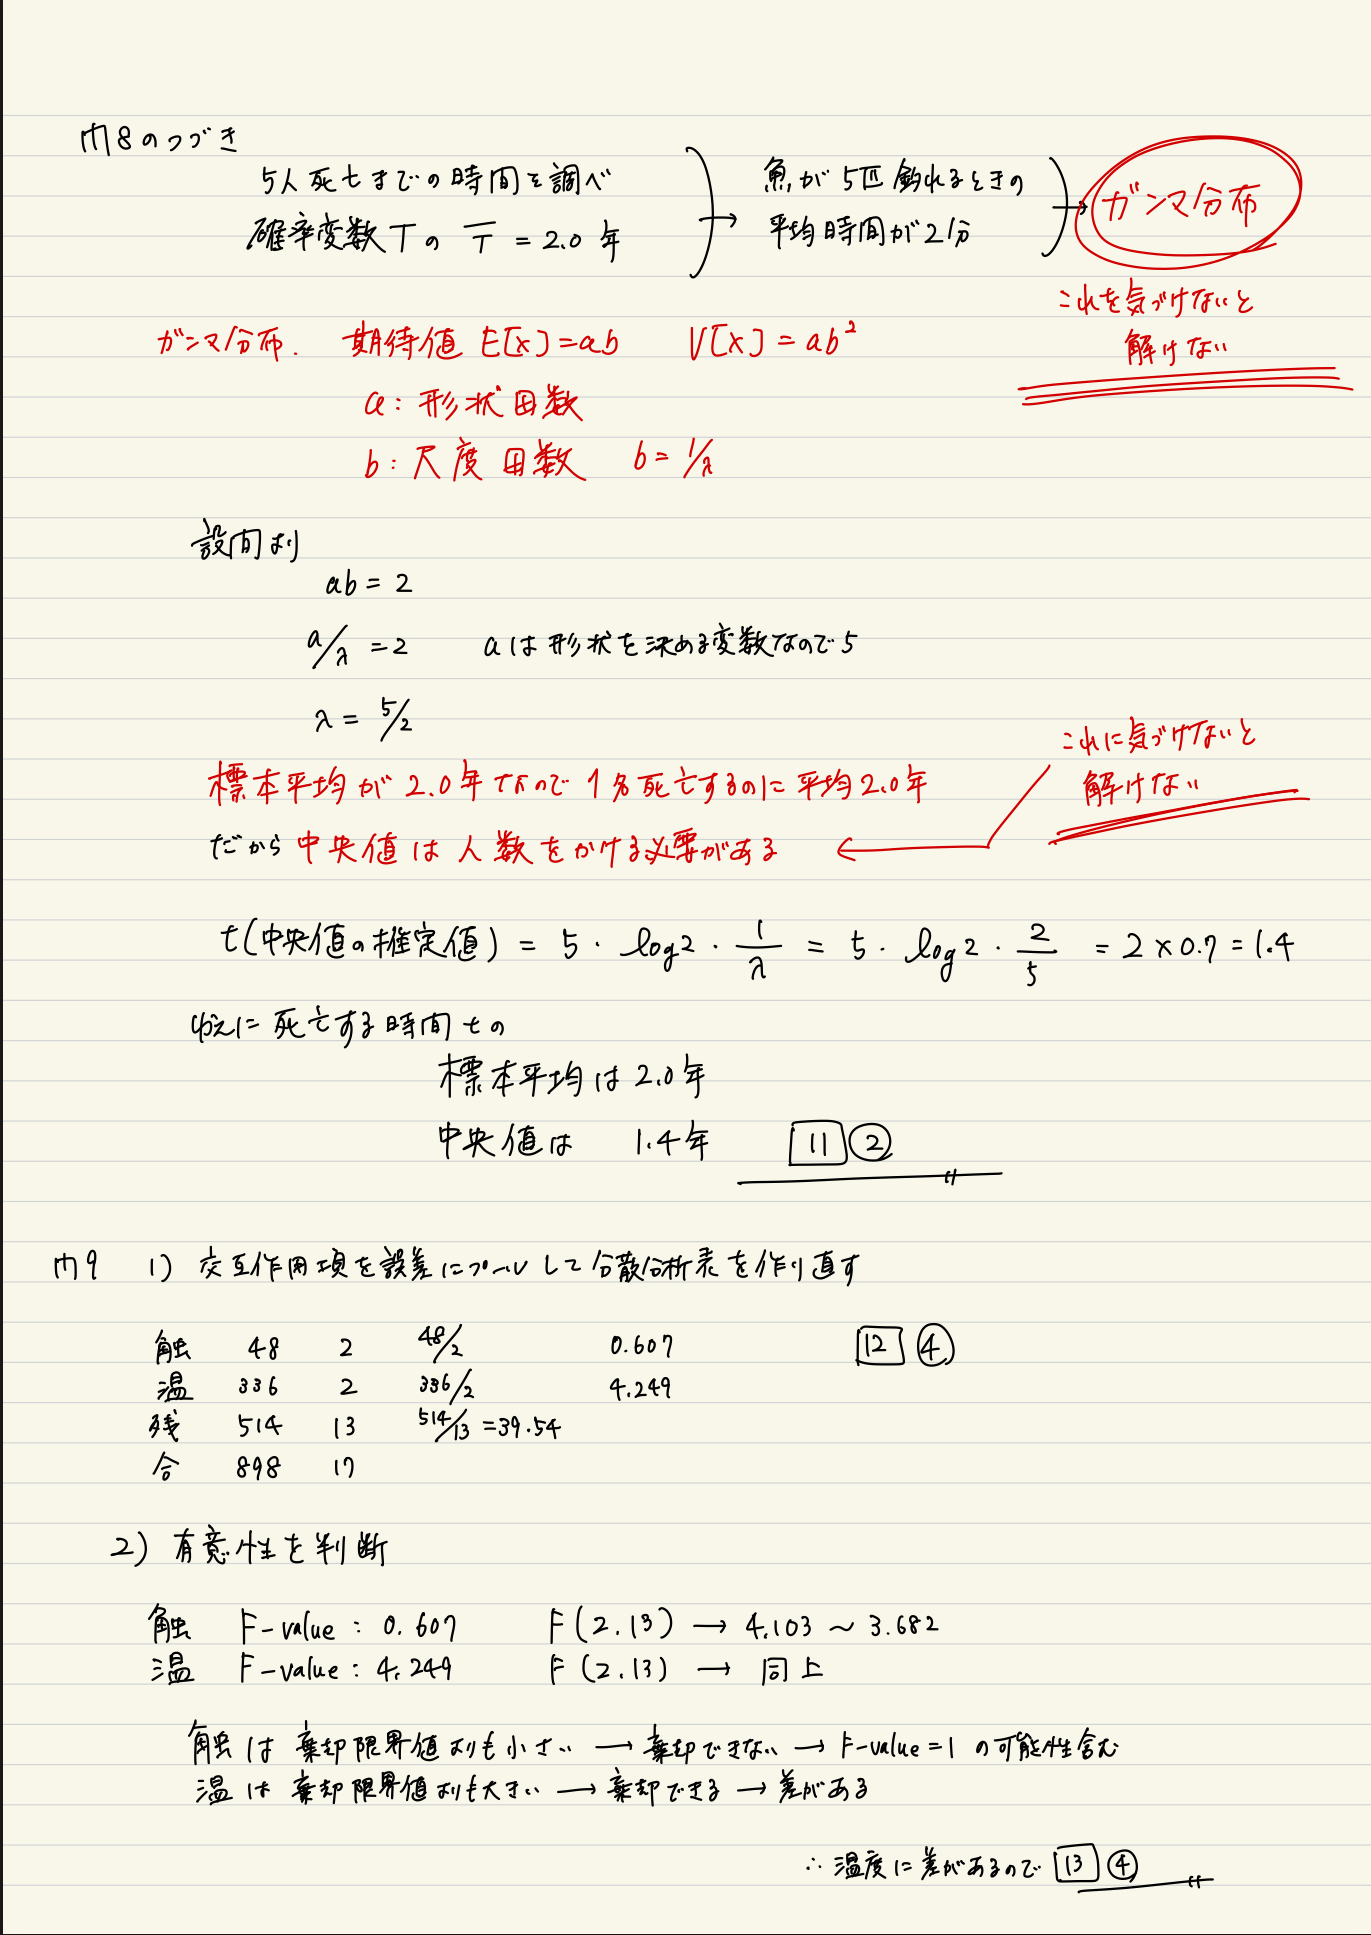 問8のつづき
5人死亡までの時間を調べ
確率変数Tの T̄ = 2.0 年
魚が5匹釣れるときの
平均時間が2分
ガンマ分布
これを気づけないと
解けない
ガンマ分布. 期待値 E[x]=ab V[x]=ab²
a: 形状母数
b: 尺度母数 b=1/λ
設問より
ab = 2
a/λ = 2 aは形状を決める変数なので5
λ = 5/2
標本平均が2.0年なので1名死亡するのに平均2.0年
だから中央値は人数をかける必要がある
これに気づけないと
解けない
t(中央値の推定値) = 5・log2・1/λ = 5・log2・2/5 = 2×0.7=1.4
ゆえに死亡する時間tの
標本平均は2.0年
中央値は 1.4年 11 ②
問9 1) 交互作用項を誤差にプールして分散分析表を作り直す
触 48 2 48/2 0.607 12 ④
温 336 2 336/2 4.249
残 514 13 514/13 =39.54
合 898 17
2) 有意性を判断
触 F-value: 0.607 F(2.13) → 4.103 ~ 3.682
温 F-value: 4.249 F(2.13) → 同上
触は棄却限界値よりも小さい → 棄却できない → F-value=1 の可能性含む
温は棄却限界値よりも大きい → 棄却できる → 差がある
∴ 温度に差があるので 13 ④